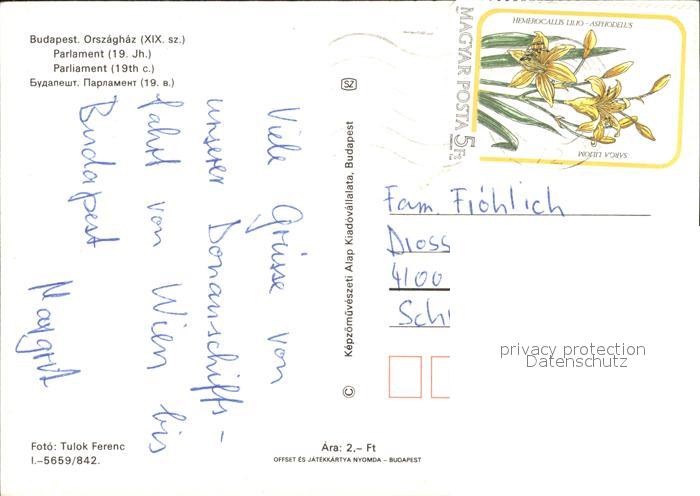 Budapest. Országház (XIX. sz.)
Parlament (19. Jh.)
Parliament (19th c.)
Будапешт. Парламент (19. в.)
Viele Grüsse von
unserer Donauschiffs-
fahrt von Wien bis
Budapest
Margrit
Fotó: Tulok Ferenc
I.–5659/842.
SZ
© Képzőművészeti Alap Kiadóvállalata, Budapest
Ára: 2,– Ft
OFFSET ÉS JÁTÉKKÁRTYA NYOMDA – BUDAPEST
HEMEROCALLIS LILIO - ASPHODELUS
MAGYAR POSTA 5Ft
SÁRGA LILIOM
Fam. Fröhlich
Dross
4100
Sch
privacy protection
Datenschutz